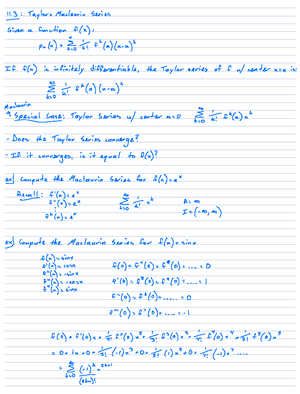 11.3: Taylor & Maclaurin Series
Given a function f(x):
pₙ(x) = Σ 1/k! fᵏ(a)(x-a)ᵏ
If f(x) is infinitely differentiable, the Taylor series of f w/ center x=a is:
∞ Σ k=0 1/k! fᵏ(a)(x-a)ᵏ
Maclaurin
* Special Case: Taylor Series w/ center a=0 ∞ Σ k=0 1/k! fᵏ(0)xᵏ
- Does the Taylor Series converge?
- If it converges, is it equal to f(x)?
ex) Compute the Maclaurin Series for f(x)=eˣ
Recall: f'(x)=eˣ
f''(x)=eˣ
fᵏ(x)=eˣ
∞ Σ k=0 1/k! xᵏ
R=∞
I=(-∞,∞)
ex) Compute the Maclaurin Series for f(x)=sinx
f(x)=sinx
f'(x)=cosx
f''(x)=-sinx
f'''(x)=-cosx
f⁴(x)=sinx
f(0)=f⁴(0)=f⁸(0)=....=0
f'(0)=f⁵(0)=f⁹(0)=....=1
f''(0)=f⁶(0)=......=0
f'''(0)=f⁷(0)=....=-1
f(0)+f'(0)x+1/2! f²(0)x²+1/3! f³(0)x³+1/4! f⁴(0)x⁴+1/5! f⁵(0)x⁵
∞ Σ k=0 (-1)ᵏ x²ᵏ⁺¹/(2k+1)!